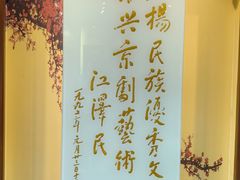 揚民族優秀文
振兴京劇藝術
江澤民
一九九二年元月廿二日